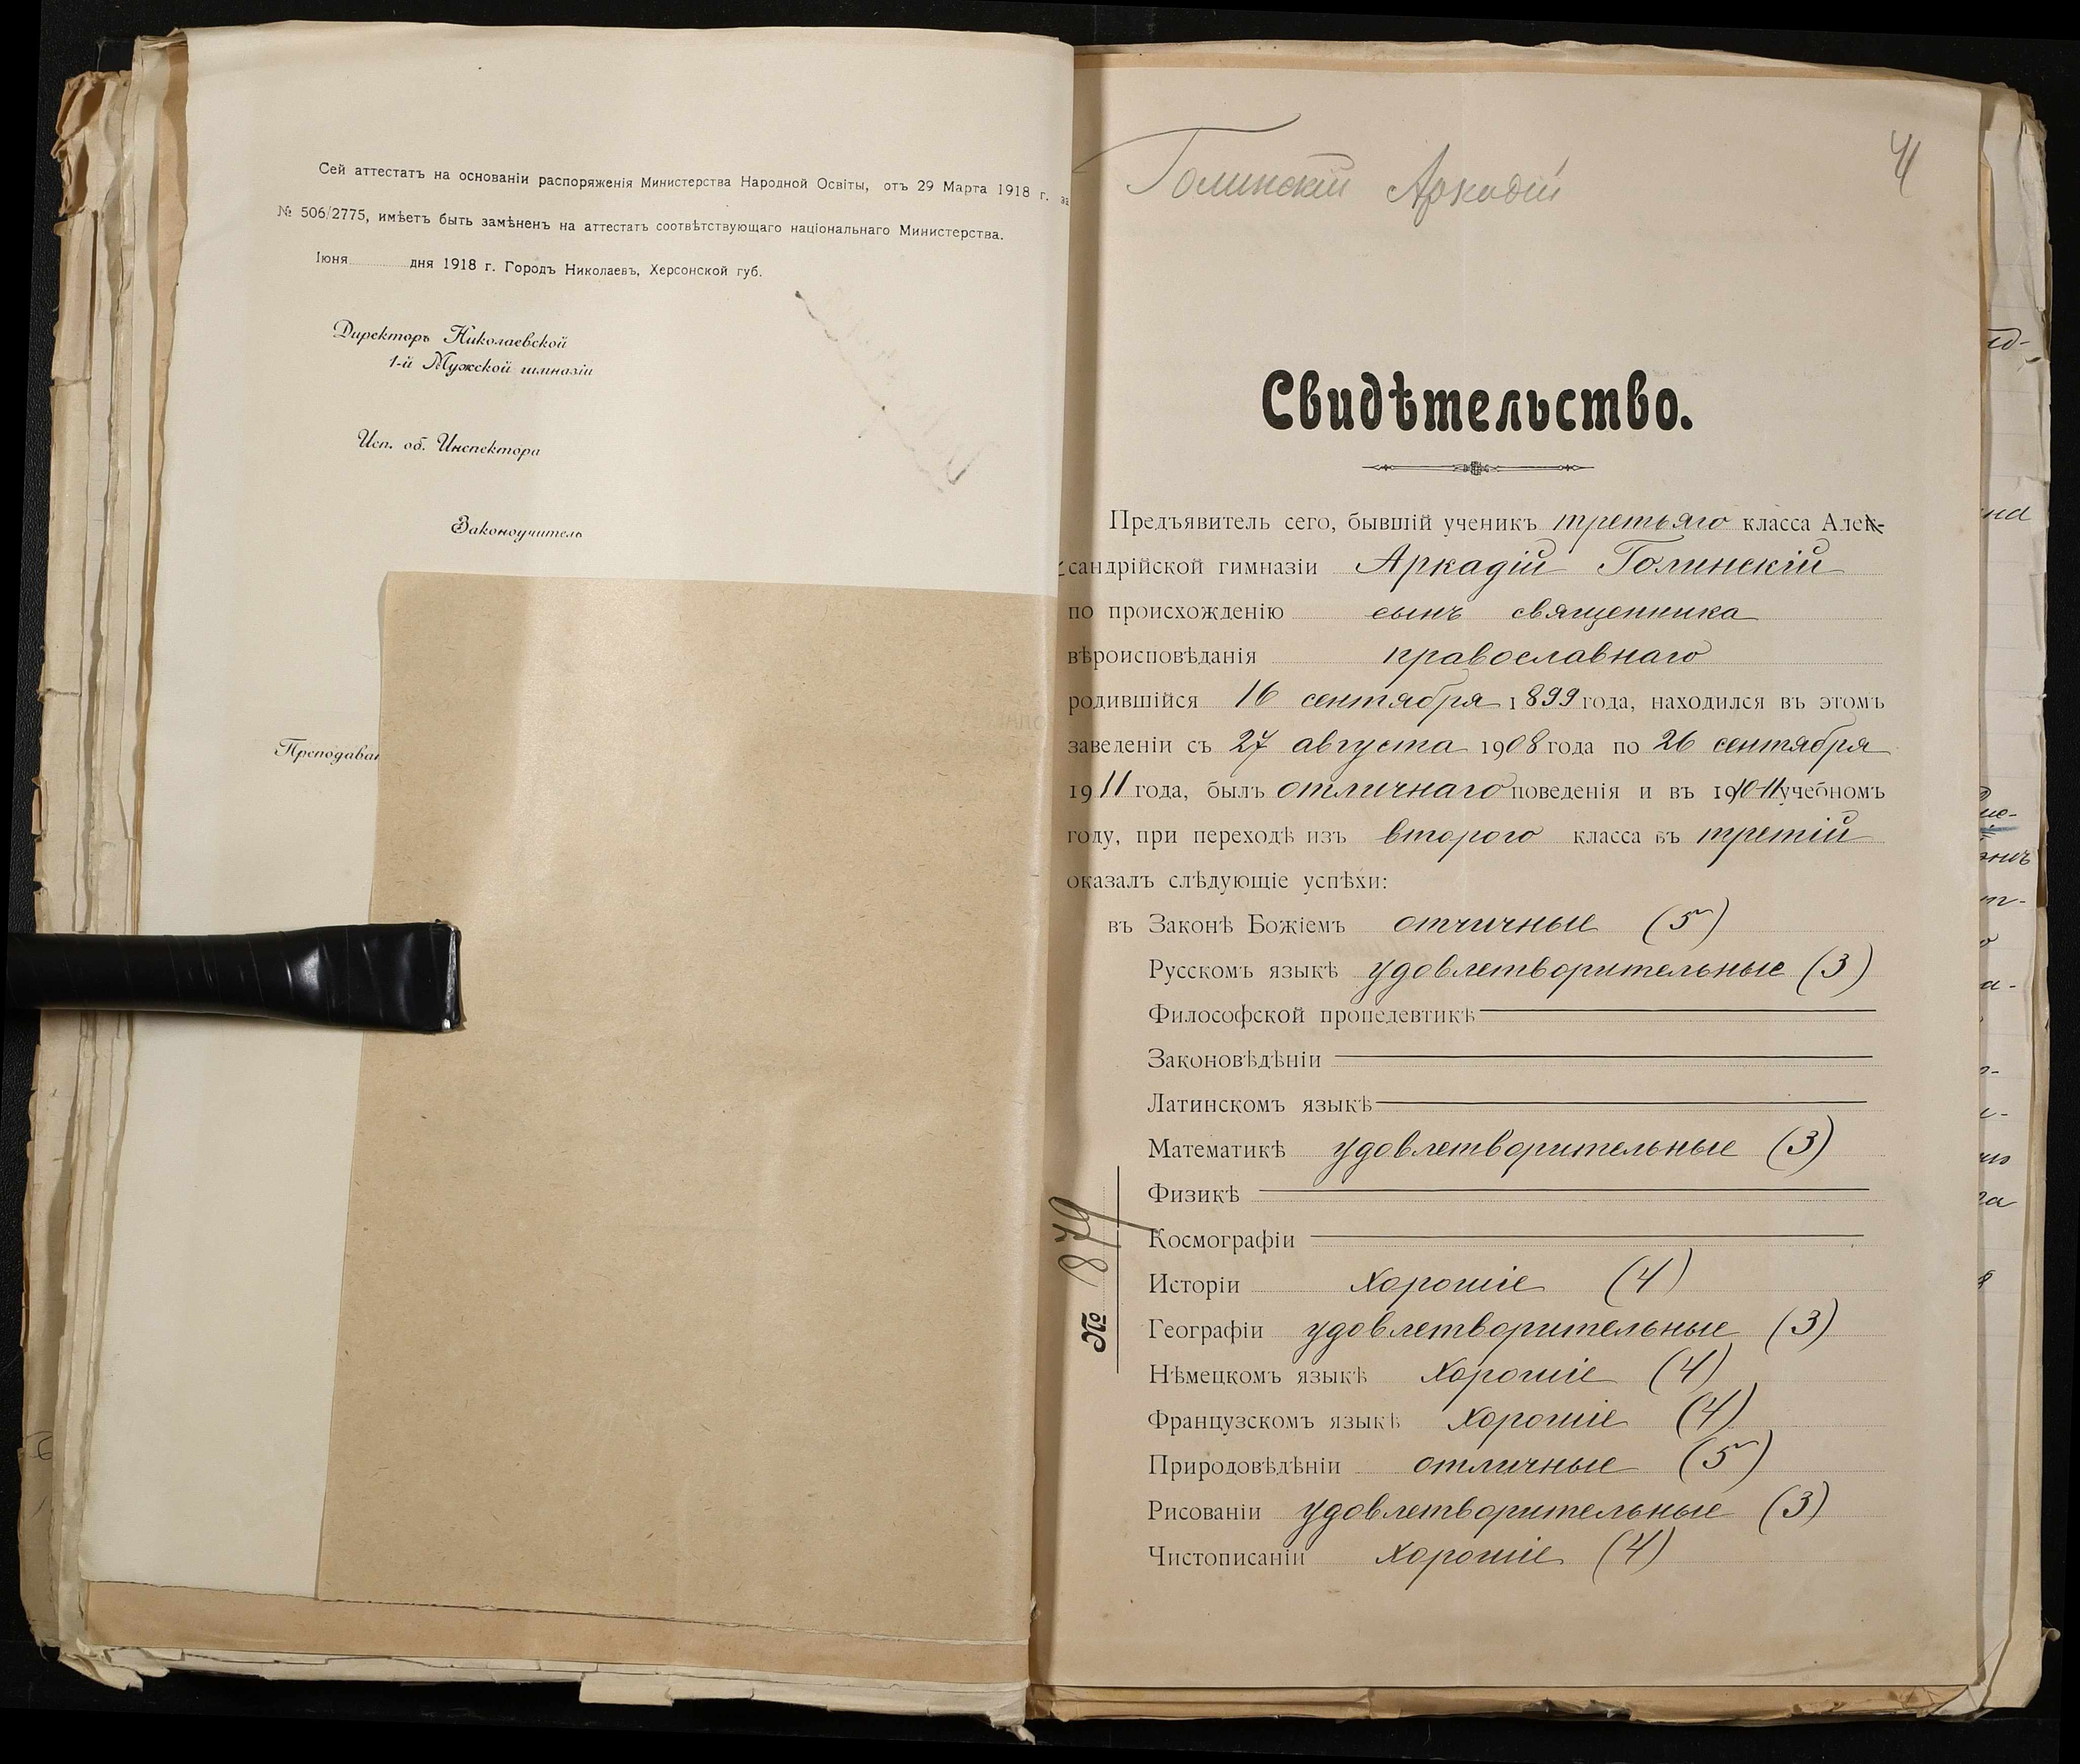 Сей аттестатъ на основаніи распоряженія Министерства Народной Освіты, отъ 29 Марта 1918 г. за
№ 506/2775, имѣетъ быть замѣненъ на аттестатъ соотвѣтствующаго національнаго Министерства.
Іюня дня 1918 г. Городъ Николаевъ, Херсонской губ.
Директоръ Николаевской
1-й Мужской гимназіи
Исп. об. Инспектора
Законоучитель
Преподават
Голинскій Аркадій
4
Свидѣтельство.
Предъявитель сего, бывшій ученикъ третьяго класса Алек-
сандрійской гимназіи Аркадій Голинскій
по происхожденію сынъ священника
вѣроисповѣданія православнаго
родившійся 16 сентября 1899 года, находился въ этомъ
заведеніи съ 27 августа 1908 года по 26 сентября
1911 года, былъ отличнаго поведенія и въ 1910-11 учебномъ
году, при переходѣ изъ второго класса въ третій
оказалъ слѣдующіе успѣхи:
въ Законѣ Божіемъ отличные (5)
Русскомъ языкѣ удовлетворительные (3)
Философской пропедевтикѣ
Законовѣдѣніи
Латинскомъ языкѣ
Математикѣ удовлетворительные (3)
Физикѣ
Космографіи
Исторіи хорошіе (4)
Географіи удовлетворительные (3)
Нѣмецкомъ языкѣ хорошіе (4)
Французскомъ языкѣ хорошіе (4)
Природовѣдѣніи отличные (5)
Рисованіи удовлетворительные (3)
Чистописаніи хорошіе (4)
№ 879